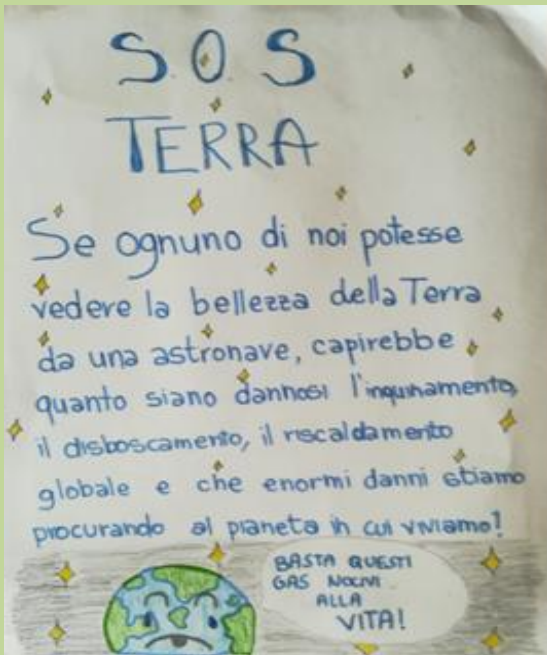 S.O.S
TERRA
Se ognuno di noi potesse
vedere la bellezza della Terra
da una astronave, capirebbe
quanto siano dannosi l'inquinamento,
il disboscamento, il riscaldamento
globale e che enormi danni stiamo
procurando al pianeta in cui viviamo!
BASTA QUESTI
GAS NOCIVI
ALLA
VITA!